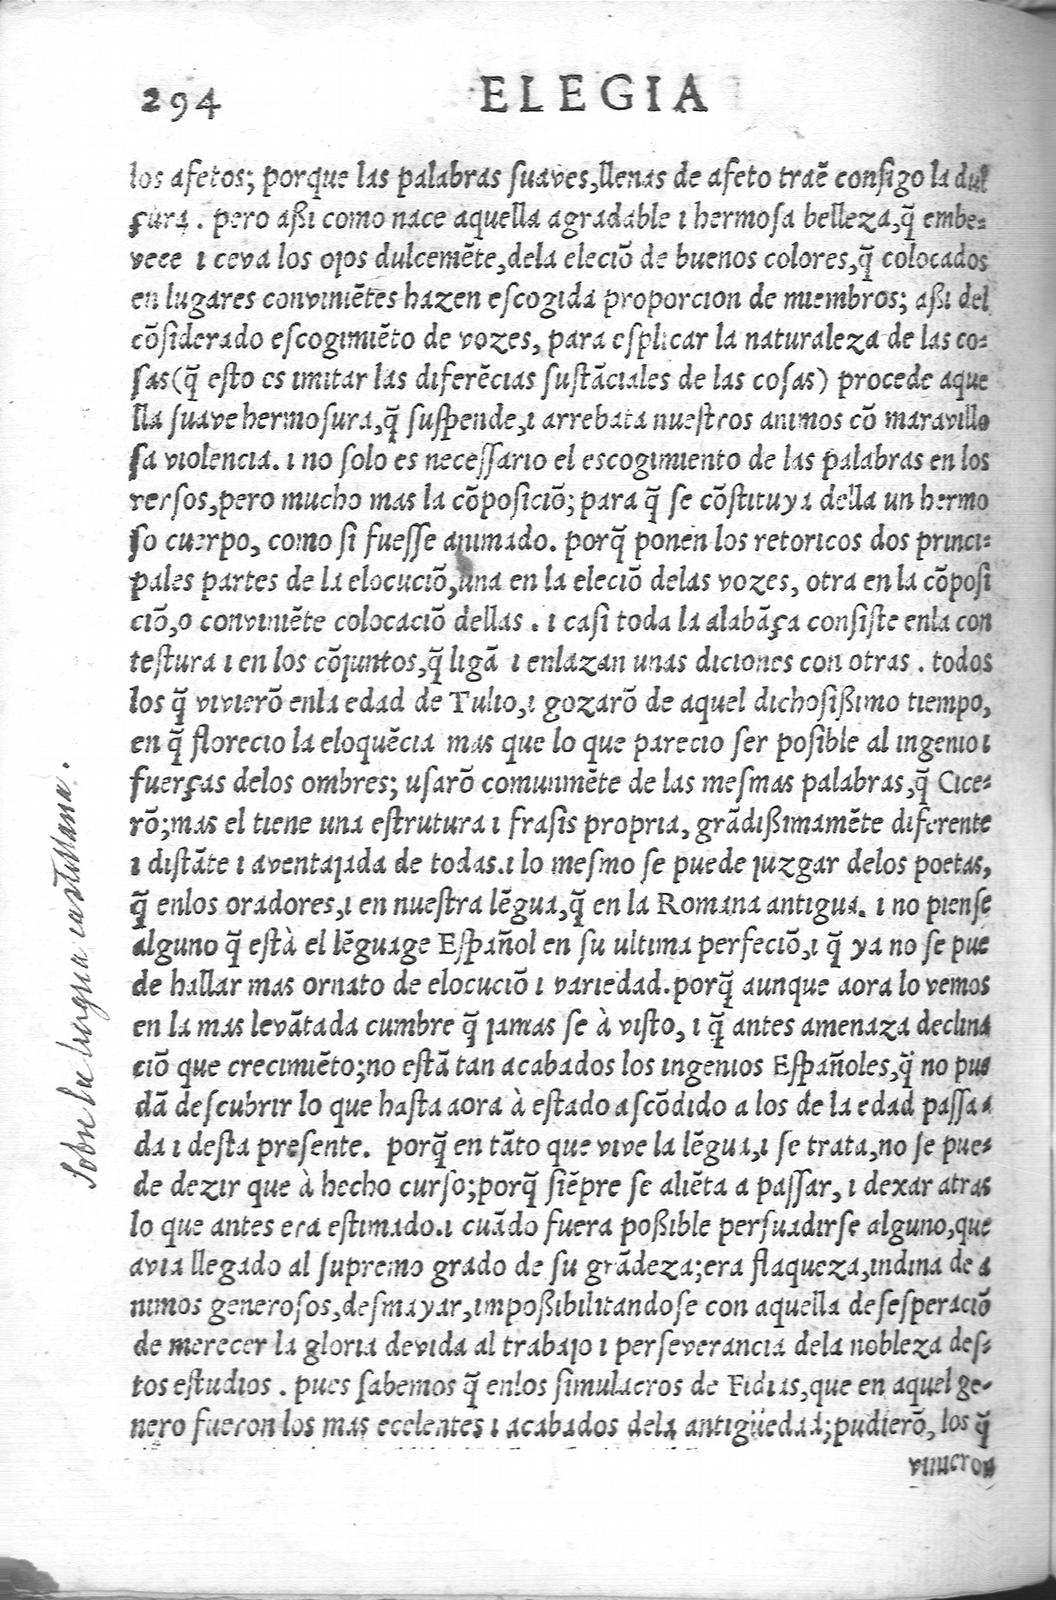 294 ELEGIA
los afetos; porque las palabras suaves, llenas de afeto traẽ consigo la dul
çura. pero aßi como nace aquella agradable i hermosa belleza, q̃ embe-
vece i ceva los ojos dulcemẽte, dela eleciõ de buenos colores, q̃ colocados
en lugares conviniẽtes hazen escogida proporcion de miembros; aßi del
cõsiderado escogimiẽto de vozes, para esplicar la naturaleza de las co-
sas (q̃ esto es imitar las diferẽcias sustãciales de las cosas) procede aque
lla suave hermosura, q̃ suspende, i arrebata nuestros animos cõ maravillo
sa violencia. i no solo es necessario el escogimiento de las palabras en los
versos, pero mucho mas la cõposiciõ; para q̃ se cõstituya della un hermo
so cuerpo, como si fuesse animado. porq̃ ponen los retoricos dos princi-
pales partes de la elocuciõ, una en la eleciõ delas vozes, otra en la cõposi
ciõ, o conviniẽte colocaciõ dellas. i casi toda la alabãça consiste enla con
testura i en los cõjuntos, q̃ ligã i enlazan unas diciones con otras. todos
los q̃ vivierõ enla edad de Tulio, i gozarõ de aquel dichosißimo tiempo,
en q̃ florecio la eloquẽcia mas que lo que parecio ser posible al ingenio i
fuerças delos ombres; usarõ comunmẽte de las mesmas palabras, q̃ Cice-
rõ; mas el tiene una estrutura i frasis propria, grãdißimamẽte diferente
i distãte i aventajada de todas. i lo mesmo se puede juzgar delos poetas,
q̃ enlos oradores, i en nuestra lẽgua, q̃ en la Romana antigua. i no piense
alguno q̃ està el lẽguage Español en su ultima perfeciõ, i q̃ ya no se pue
de hallar mas ornato de elocuciõ i variedad. porq̃ aunque aora lo vemos
en la mas levãtada cumbre q̃ jamas se à visto, i q̃ antes amenaza declina
ciõ que crecimiẽto; no estã tan acabados los ingenios Españoles, q̃ no pue
dã descubrir lo que hasta aora à estado ascõdido a los de la edad passa-
da i desta presente. porq̃ en tãto que vive la lẽgua, i se trata, no se pue-
de dezir que à hecho curso; porq̃ siẽpre se aliẽta a passar, i dexar atras
lo que antes era estimado. i cuãdo fuera poßible persuadirse alguno, que
avia llegado al supremo grado de su grãdeza; era flaqueza, indina de a
nimos generosos, desmayar, impoßibilitandose con aquella desesperaciõ
de merecer la gloria devida al trabajo i perseverancia dela nobleza des-
tos estudios. pues sabemos q̃ enlos simulacros de Fidias, que en aquel ge-
nero fueron los mas ecelentes i acabados dela antigüedad; pudierõ, los q̃
vinieron
Sobre la lengua castellana.